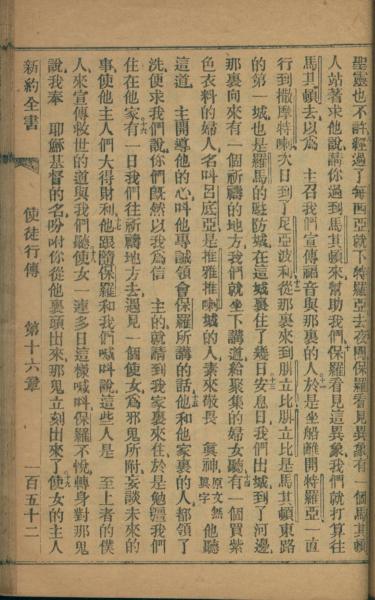 聖靈也不許經過了每西亞就下特羅亞去夜間保羅看見異象有一個馬其頓
人站著求他說請你過到馬其頓來幫助我們保羅看見這異象我們就打算往
馬其頓去以爲 主召我們宣傳福音與那裏的人於是坐船離開特羅亞一直
行到撒摩特喇次日到了尼亞波利從那裏來到腓立比腓立比是馬其頓東路
的第一城也是羅馬的駐防城在這城裏住了幾日安息日我們出城到了河邊
那裏向來有一個祈禱的地方我們就坐下講道給聚集的婦女聽有一個買紫
色衣料的婦人名叫呂底亞是推雅推喇城的人素來敬畏 眞神原文無眞字他聽
這道 主開導他的心叫他專誠領會保羅所講的話他和他家裏的人都領了
洗便求我們說你們旣然以我爲信 主的就請到我家裏來住於是勉强我們
住在他家有一日我們往祈禱地方去遇見一個使女爲邪鬼所附妄談未來的
事使他主人們大得財利他跟隨保羅和我們喊叫說這些人是 至上者的僕
人來宣傳救世的道與我們聽使女一連多日這樣喊叫保羅不悅轉身對那鬼
說我奉 耶穌基督的名吩咐你從他裏頭出來那鬼立刻出來了使女的主人
新約全書 使徒行傳 第十六章 一百五十二